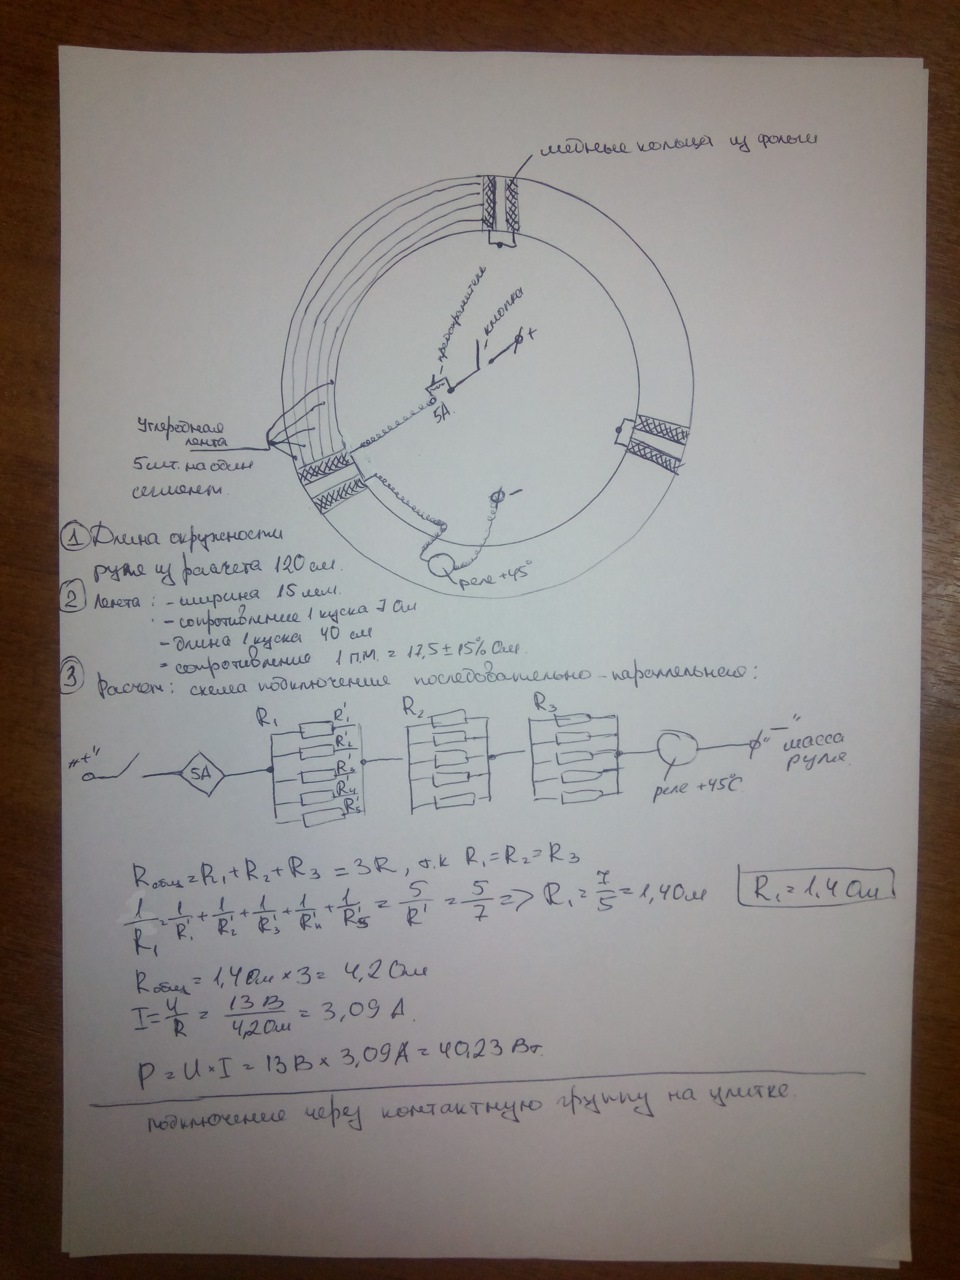 медные кольца из фольги
предохранитель
кнопка
+
5А.
Углеродная
лента
5 шт. на один
сегмент.
-
реле +45°
① Длина окружности
руля из расчета 120 см.
② Лента: - ширина 15 мм.
- сопротивление 1 куска 7 Ом
- длина 1 куска 40 см
- сопротивление 1 п.м. = 17,5 ± 15% Ом.
③ Расчет: схема подключение последовательно-параллельная:
R₁ R'₁ R₂ R₃
R'₂
"+" 5А R'₃ "-" масса
R'₄ руля.
R'₅ реле +45°С
Rобщ = R₁ + R₂ + R₃ = 3R, т.к R₁ = R₂ = R₃
1/R₁ = 1/R'₁ + 1/R'₂ + 1/R'₃ + 1/R'₄ + 1/R'₅ = 5/R' = 5/7 => R₁ = 7/5 = 1,4 Ом R₁ = 1,4 Ом
Rобщ = 1,4 Ом × 3 = 4,2 Ом
I = U/R = 13 В/4,2 Ом = 3,09 А.
P = U × I = 13 В × 3,09 А = 40,23 Вт.
подключение через контактную группу на улитке.